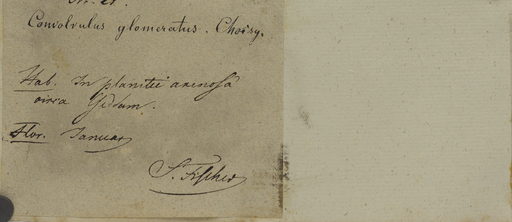 Convolvulus glomeratus. Choisy.
Hab. In planitie arenosâ
circa Giddam.
Flor. Januar
F. Fischer